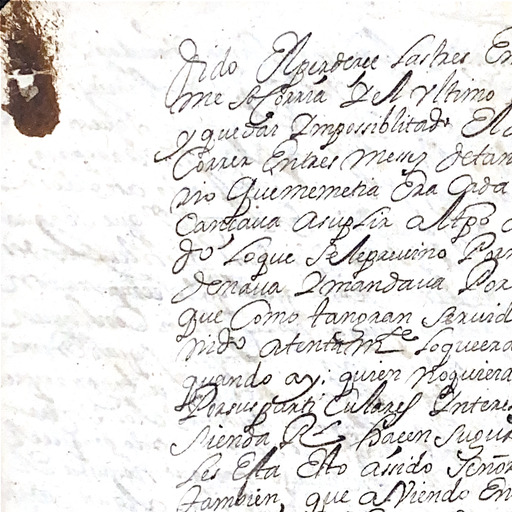 dido El perderce las tres En
me so Corria Y el Vltimo
y quedar Ymposiblitado El
Correr Entres meses detan
rio Queme metia Era Cada
Cansava a suplir al tpo
do loque se le previno Por
denava Ymandava Por
que Como tangran servid
nido atentamte loqueera
quando ay quien noquiera
Porsus particulares Yntere
sienda Rl hacen su gus
les Esta Esto assido señor
tambien, que a Viendo En